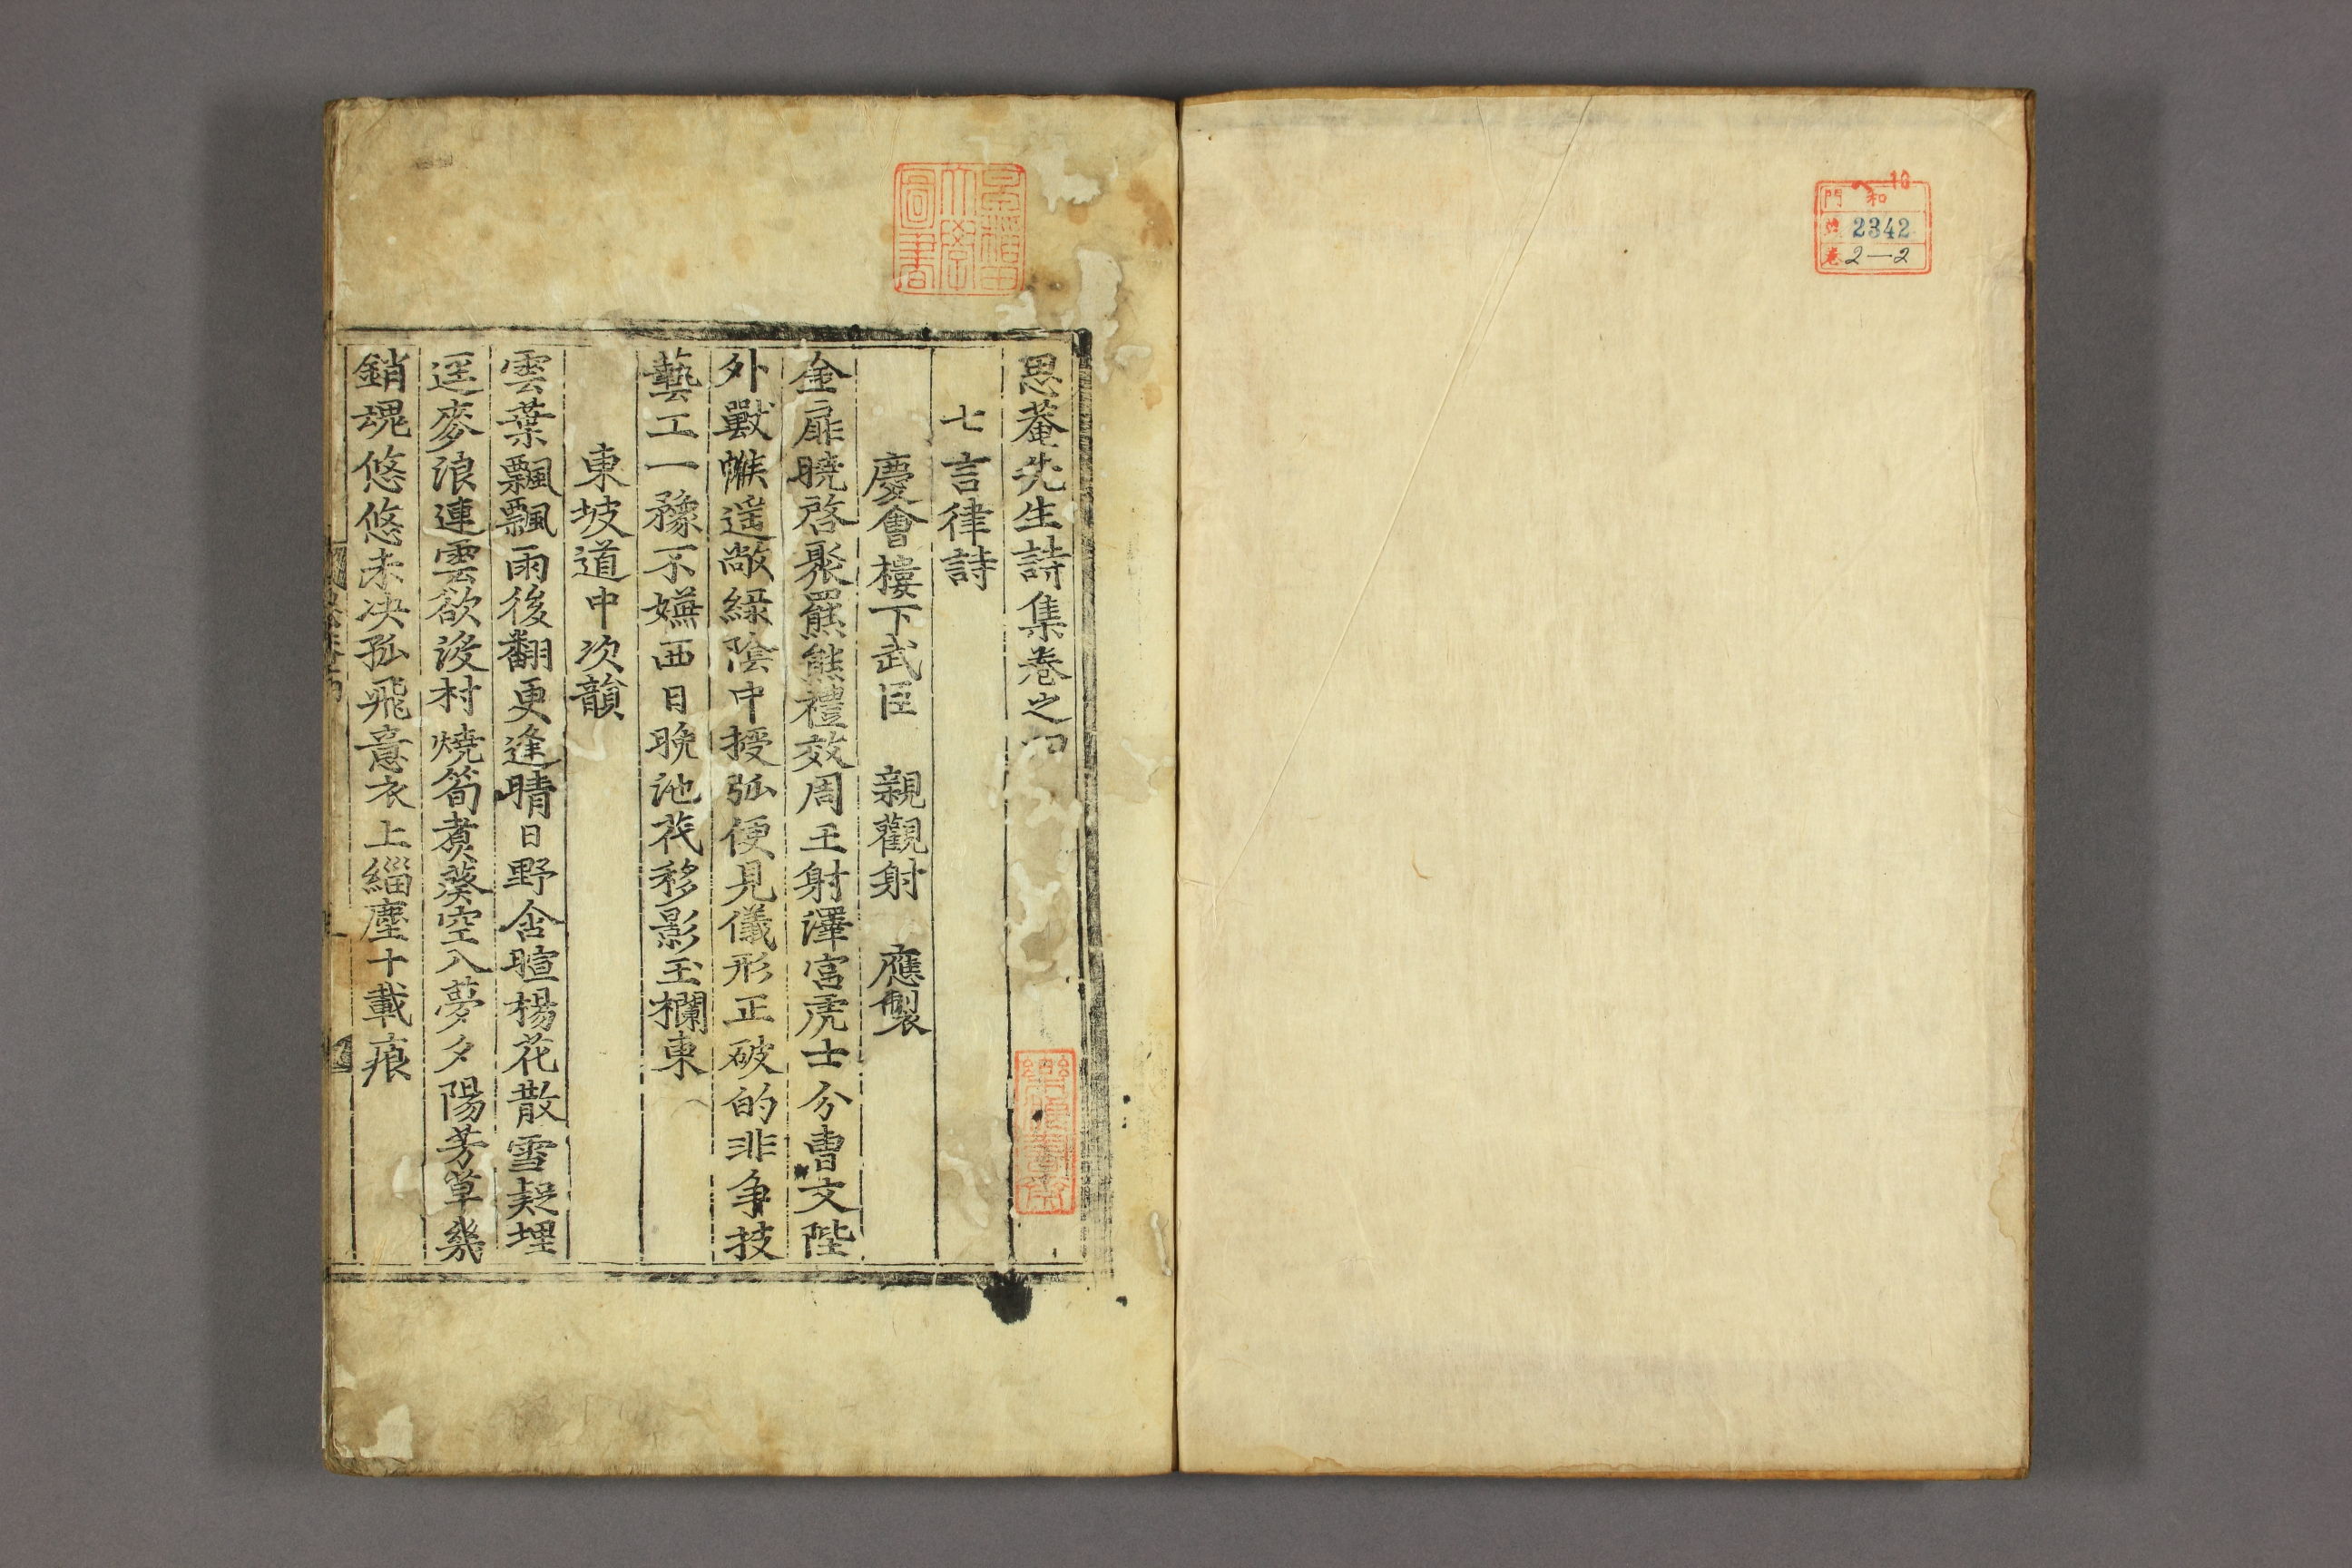 ヘ 16
門 和
號 2342
卷 2—2
早稻田大學圖書
思菴先生詩集卷之四
七言律詩
慶會樓下武臣 親觀射 應製
金扉曉啓聚羆熊禮效周王射澤宮虎士分曹文陛
外獸帿遥敞綠陰中授弧便見儀形正破的非争技
藝工一豫不嫌西日晚池茷移影玉欄東
東坡道中次韻
雲葉飄飄雨後翻更逢晴日野含暄楊花散雪疑埋
逕麥浪連雲欲沒村燒筍煮葵空入夢夕陽芳草幾
銷魂悠悠未决孤飛意衣上緇塵十載痕